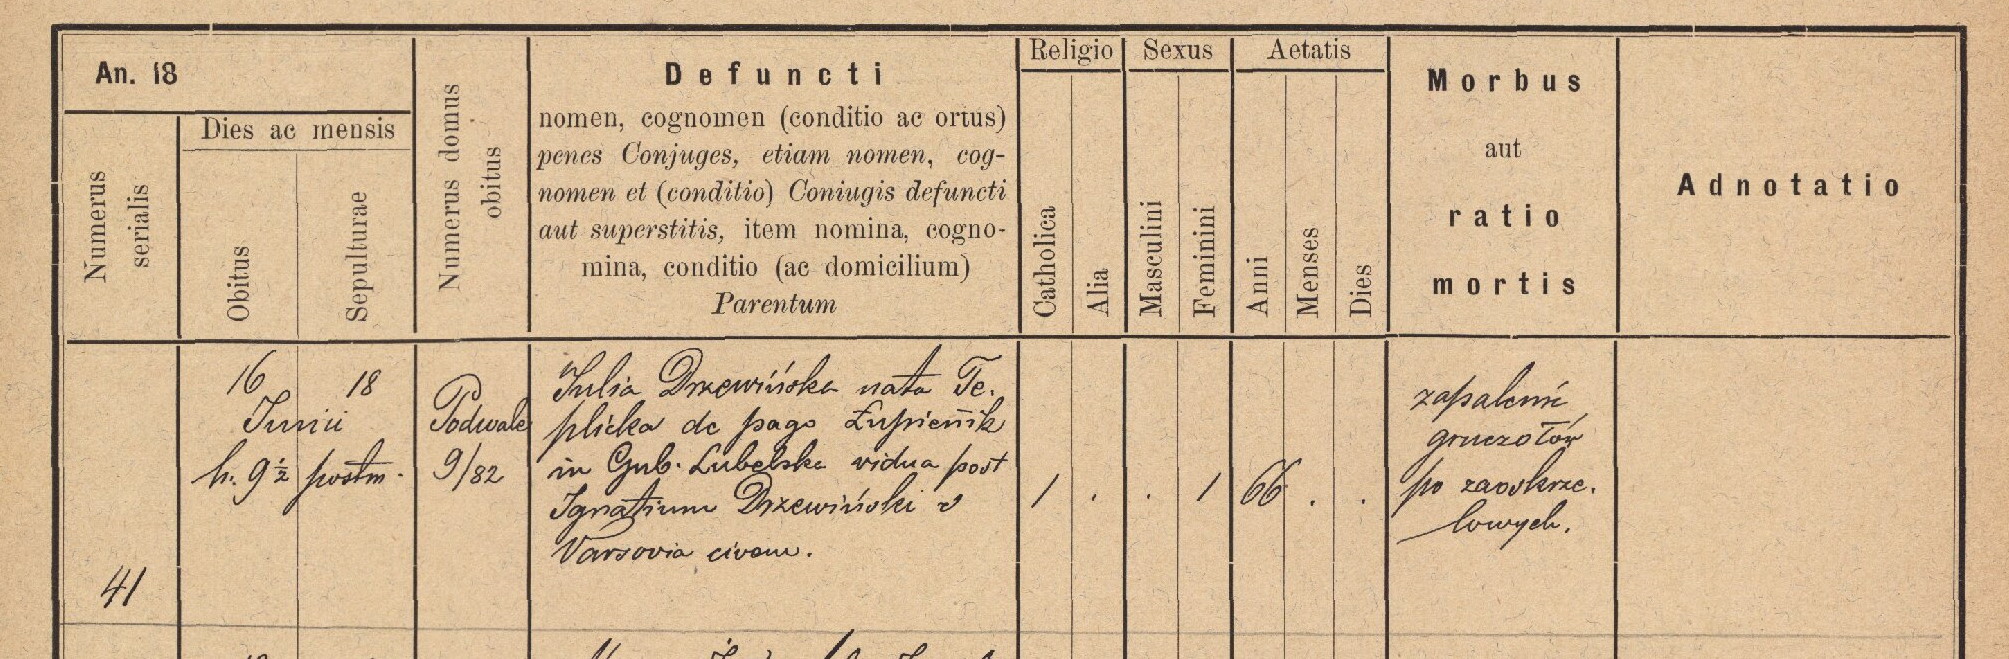 An. 18
Dies ac mensis
Numerus serialis
Obitus
Sepulturae
Numerus domus obitus
Defuncti
nomen, cognomen (conditio ac ortus)
penes Conjuges, etiam nomen, cog-
nomen et (conditio) Coniugis defuncti
aut superstitis, item nomina, cogno-
mina, conditio (ac domicilium)
Parentum
Religio
Catholica
Alia
Sexus
Masculini
Feminini
Aetatis
Anni
Menses
Dies
Morbus
aut
ratio
mortis
Adnotatio
41
16 18
Junii
h. 9 1/2 postm.
Podwale
9/82
Julia Drzewińska nata Te-
plicka de pago Łupiennik
in Gub. Lubelska vidua post
Ignatium Drzewiński e
Varsovia civem.
1 . . 1 66 . .
zapalenie
gruczołów
po zaoskrze-
lowych.